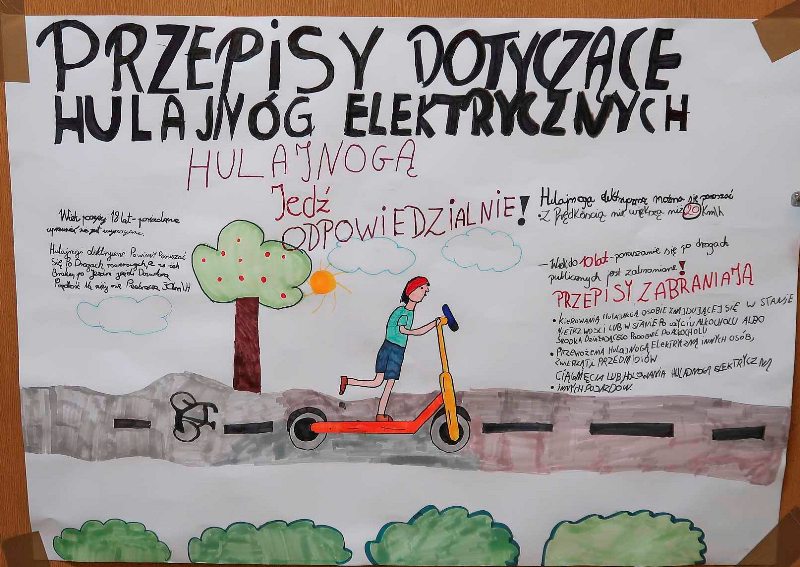 PRZEPISY DOTYCZĄCE
HULAJNÓG ELEKTRYCZNYCH
HULAJNOGĄ
Jedź
ODPOWIEDZIALNIE!
Wiek powyżej 18 lat - posiadanie
uprawnień nie jest wymagane.
Hulajnogi elektryczne Powinny Poruszać
się Po Drogach rowerowych, a w razie
Braku, po jezdni
Prędkość
Hulajnogą elektryczną można się poruszać
• Z Prędkością nie większą niż 20 Km/h
- Wiek do 10 lat - poruszanie się po drogach
publicznych jest zabronione!
PRZEPISY ZABRANIAJĄ
• KIEROWANIA HULAJNOGĄ OSOBIE ZNAJDUJĄCEJ SIĘ W STANIE
NIETRZEŹWOŚCI LUB W STANIE PO UŻYCIU ALKOHOLU ALBO
ŚRODKA DZIAŁAJĄCEGO PODOBNIE DO ALKOHOLU
• PRZEWOŻENIA HULAJNOGĄ ELEKTRYCZNĄ INNYCH OSÓB,
ZWIERZĄT I PRZEDMIOTÓW
CIĄGNIĘCIA LUB HOLOWANIA HULAJNOGĄ ELEKTRYCZNĄ
• INNYCH POJAZDÓW.